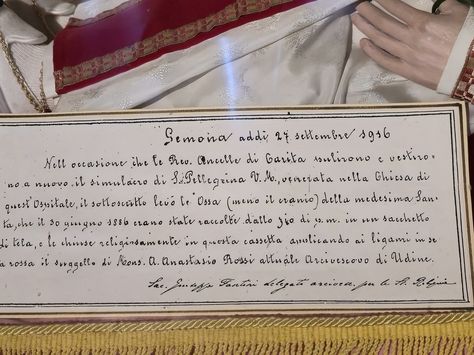 Gemona addì 27 settembre 1916
Nell'occasione che le Rev. Ancelle di Carità pulirono e vestiro-
no a nuovo il simulacro di S. Pellegrina V. M., venerata nella Chiesa di
quest'Ospitale, il sottoscritto levò le Ossa (meno il cranio) della medesima San-
ta, che il 30 giugno 1886 erano state raccolte dallo zio di s.m. in un sacchetto
di tela, e le chiuse religiosamente in questa cassetta applicando ai ligami in se
a rossa il suggello di Mons. A. Anastasio Rossi attuale Arcivescovo di Udine.
Sac. Giuseppe Fantini delegato arcives. per le S.